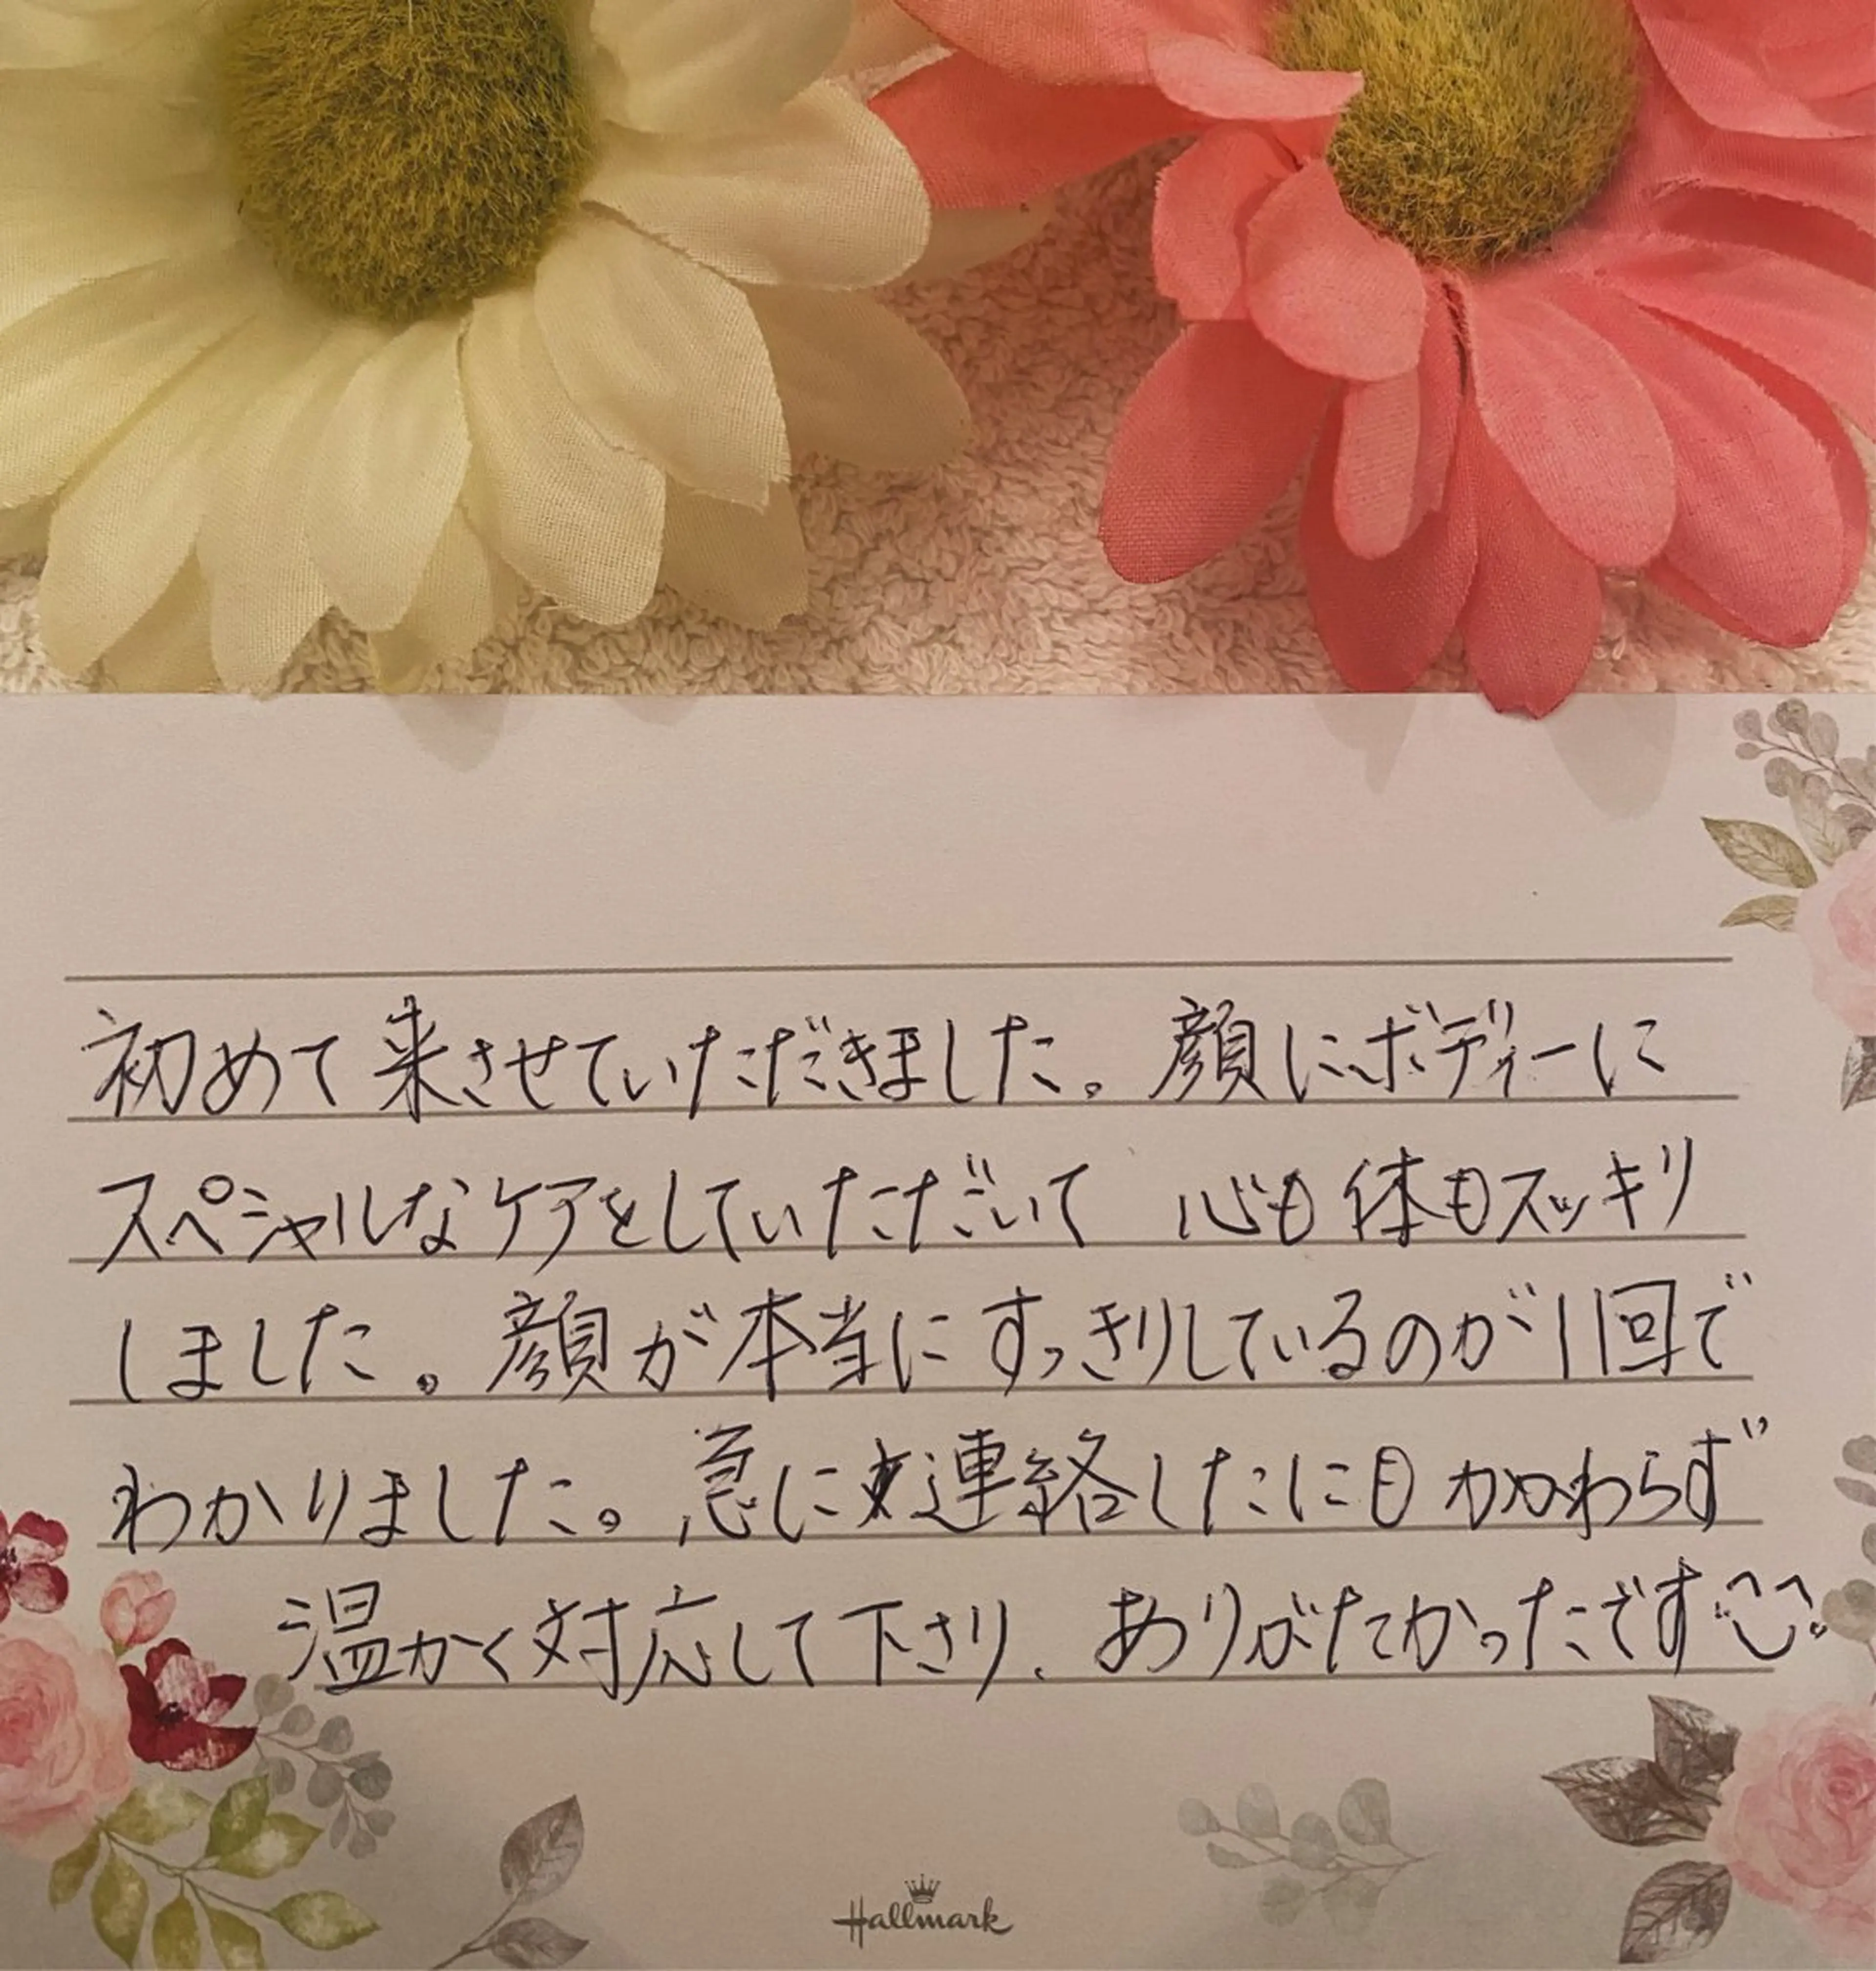 初めて来させていただきました。顔にボディーに
スペシャルなケアをしていただいて 心も体もスッキリ
しました。顔が本当にすっきりしているのが11回で
わかりました。急に連絡したにもかかわらず
温かく対応して下さり、ありがたかったです
Hallmark